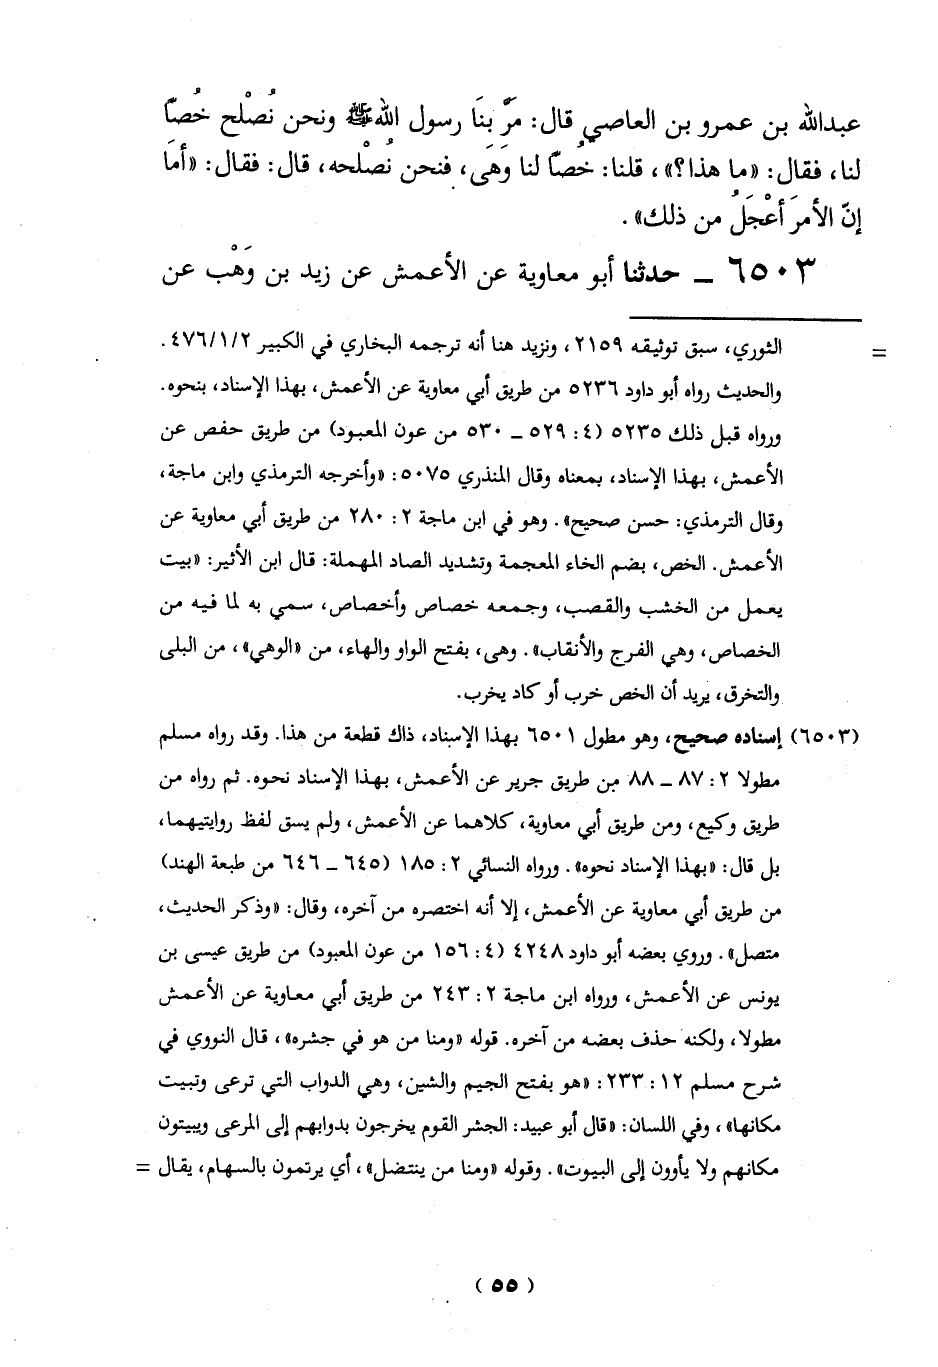 عبدالله بن عمرو بن العاصي قال: مَرَّ بنَا رسول الله ﷺ ونحن نُصْلح خُصّا
لنا، فقال: «ما هذا؟»، قلنا: خُصّا لنا وَهَى، فنحن نُصْلحه، قال: فقال: «أمَا
إنّ الأمرَ أعْجَلُ من ذلك».
٦٥٠٣ ــ حدثنا أبو معاوية عن الأعمش عن زيد بن وَهْب عن
= الثوري، سبق توثيقه ٢١٥٩، ونزيد هنا أنه ترجمه البخاري في الكبير ٤٧٦/١/٢.
والحديث رواه أبو داود ٥٢٣٦ من طريق أبي معاوية عن الأعمش، بهذا الإسناد، بنحوه.
ورواه قبل ذلك ٥٢٣٥ (٤: ٥٢٩ ــ ٥٣٠ من عون المعبود) من طريق حفص عن
الأعمش، بهذا الإسناد، بمعناه وقال المنذري ٥٠٧٥: «وأخرجه الترمذي وابن ماجة،
وقال الترمذي: حسن صحيح». وهو في ابن ماجة ٢: ٢٨٠ من طريق أبي معاوية عن
الأعمش. الخص، بضم الخاء المعجمة وتشديد الصاد المهملة: قال ابن الأثير: «بيت
يعمل من الخشب والقصب، وجمعه خصاص وأخصاص، سمي به لما فيه من
الخصاص، وهي الفرج والأنقاب». وهى، بفتح الواو والهاء، من «الوهي»، من البلى
والتخرق، يريد أن الخص خرب أو كاد يخرب.
(٦٥٠٣) إسناده صحيح، وهو مطول ٦٥٠١ بهذا الإسناد، ذاك قطعة من هذا. وقد رواه مسلم
مطولا ٢: ٨٧ ــ ٨٨ من طريق جرير عن الأعمش، بهذا الإسناد نحوه. ثم رواه من
طريق وكيع، ومن طريق أبي معاوية، كلاهما عن الأعمش، ولم يسق لفظ روايتيهما،
بل قال: «بهذا الإسناد نحوه». ورواه النسائي ٢: ١٨٥ (٦٤٥ ــ ٦٤٦ من طبعة الهند)
من طريق أبي معاوية عن الأعمش، إلا أنه اختصره من آخره، وقال: «وذكر الحديث،
متصل». وروي بعضه أبو داود ٤٢٤٨ (٤: ١٥٦ من عون المعبود) من طريق عيسى بن
يونس عن الأعمش، ورواه ابن ماجة ٢: ٢٤٣ من طريق أبي معاوية عن الأعمش
مطولا، ولكنه حذف بعضه من آخره. قوله «ومنا من هو في جشره»، قال النووي في
شرح مسلم ١٢: ٢٣٣: «هو بفتح الجيم والشين، وهي الدواب التي ترعى وتبيت
مكانها»، وفي اللسان: «قال أبو عبيد: الجشر القوم يخرجون بدوابهم إلى المرعى ويبيتون
مكانهم ولا يأوون إلى البيوت». وقوله «ومنا من ينتضل»، أي يرتمون بالسهام، يقال =
( ٥٥ )